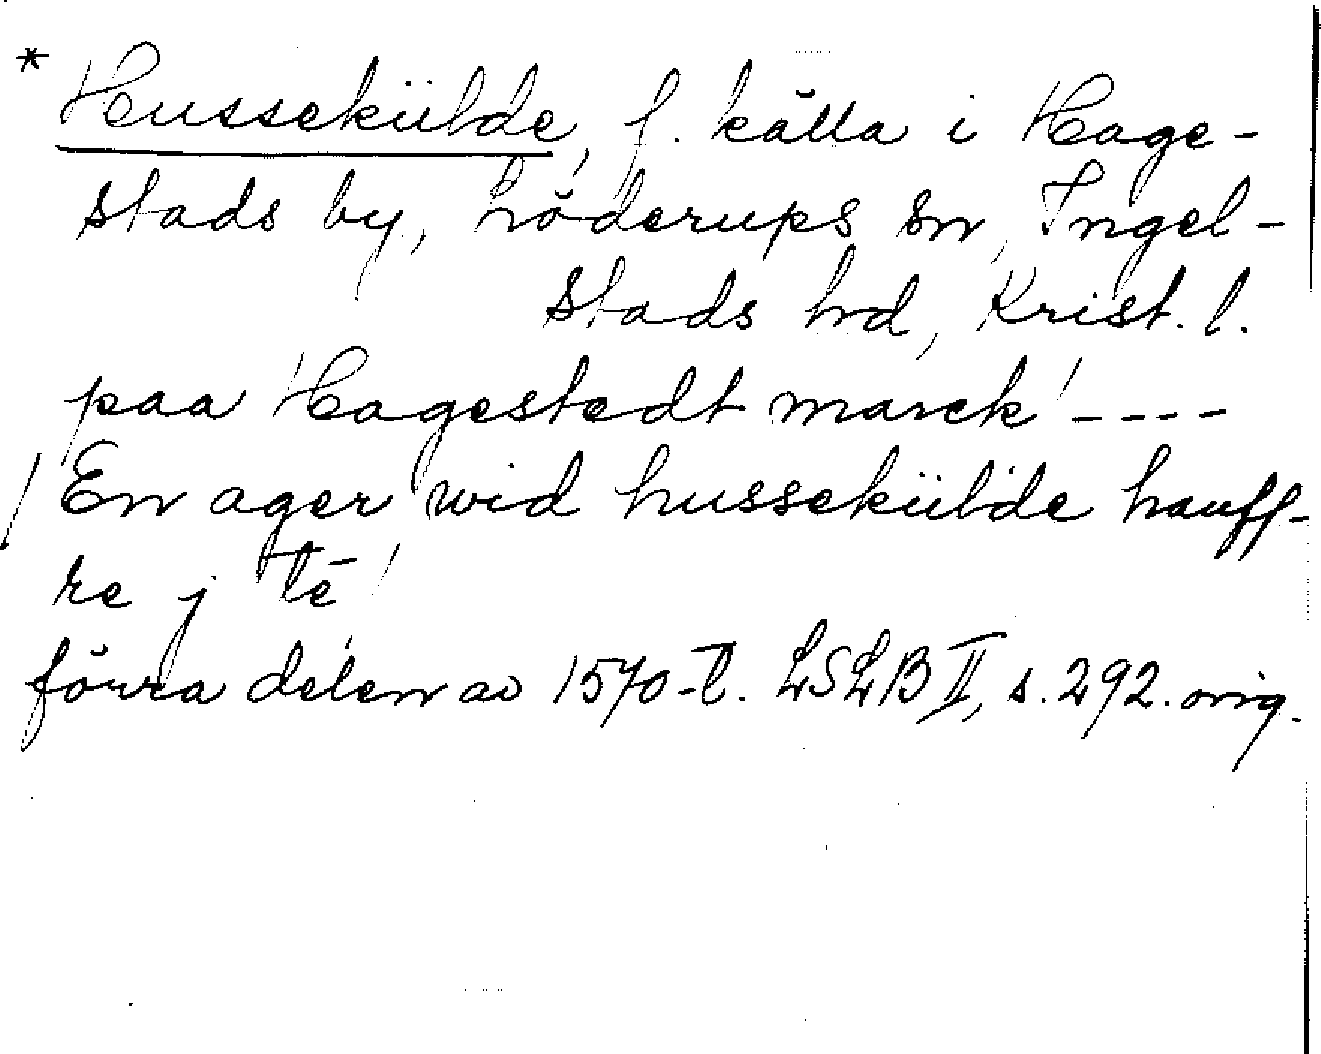 * Hussekülde, f. källa i Hage-
stads by, Löderups sn, Ingel-
stads hd, Krist. l.
paa Hagestedt marck ----
/ En ager wid hussekülde hauff-
re j tē /
förra delen av 1570-t. LSLB II, s. 292. orig.